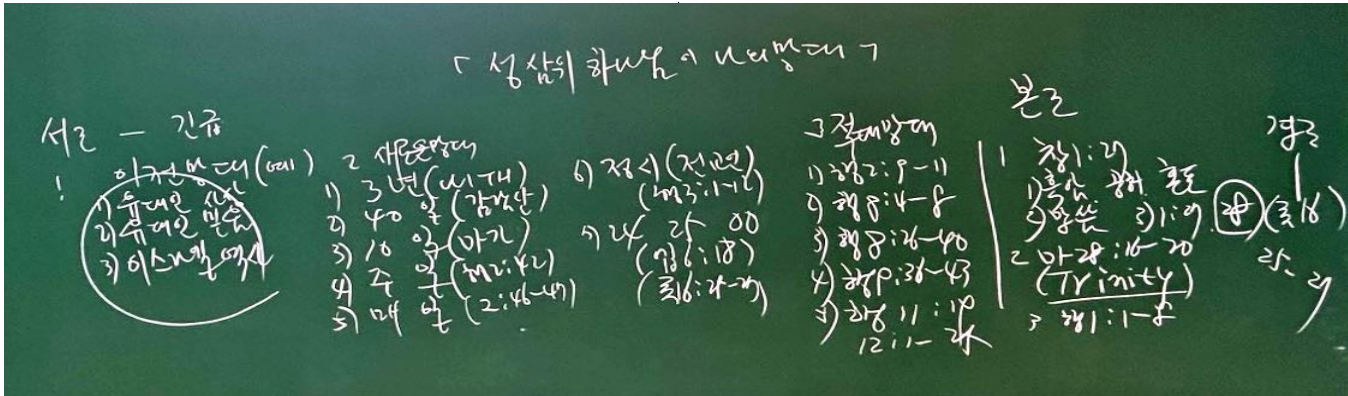 「성삼위 하나님의 나의망대」
서론 — 긴급
1 이전망대(어제)
1) 유대인 신분
2) 유대인 믿음
3) 이스라엘 역사
2 새로운망대
1) 3년(시대)
2) 40일(감람산)
3) 10일(마가)
4) 주일(행2:42)
5) 매일(2:46-47)
6) 정시(전념)
(행3:1-12)
7) 24 25 00
(엡6:18)
(롬16:25-27)
3 절대망대
1) 행2:9-11
2) 행8:4-8
3) 행8:26-40
4) 행9:36-43
5) 행11:19
12:1-25
본론
1 창1:27
1) 흑암 공허 혼돈
2) 창1:27, 28
2 마28:16-20
(Trinity)
3 행1:1-8
결론
(롬16)
25-27